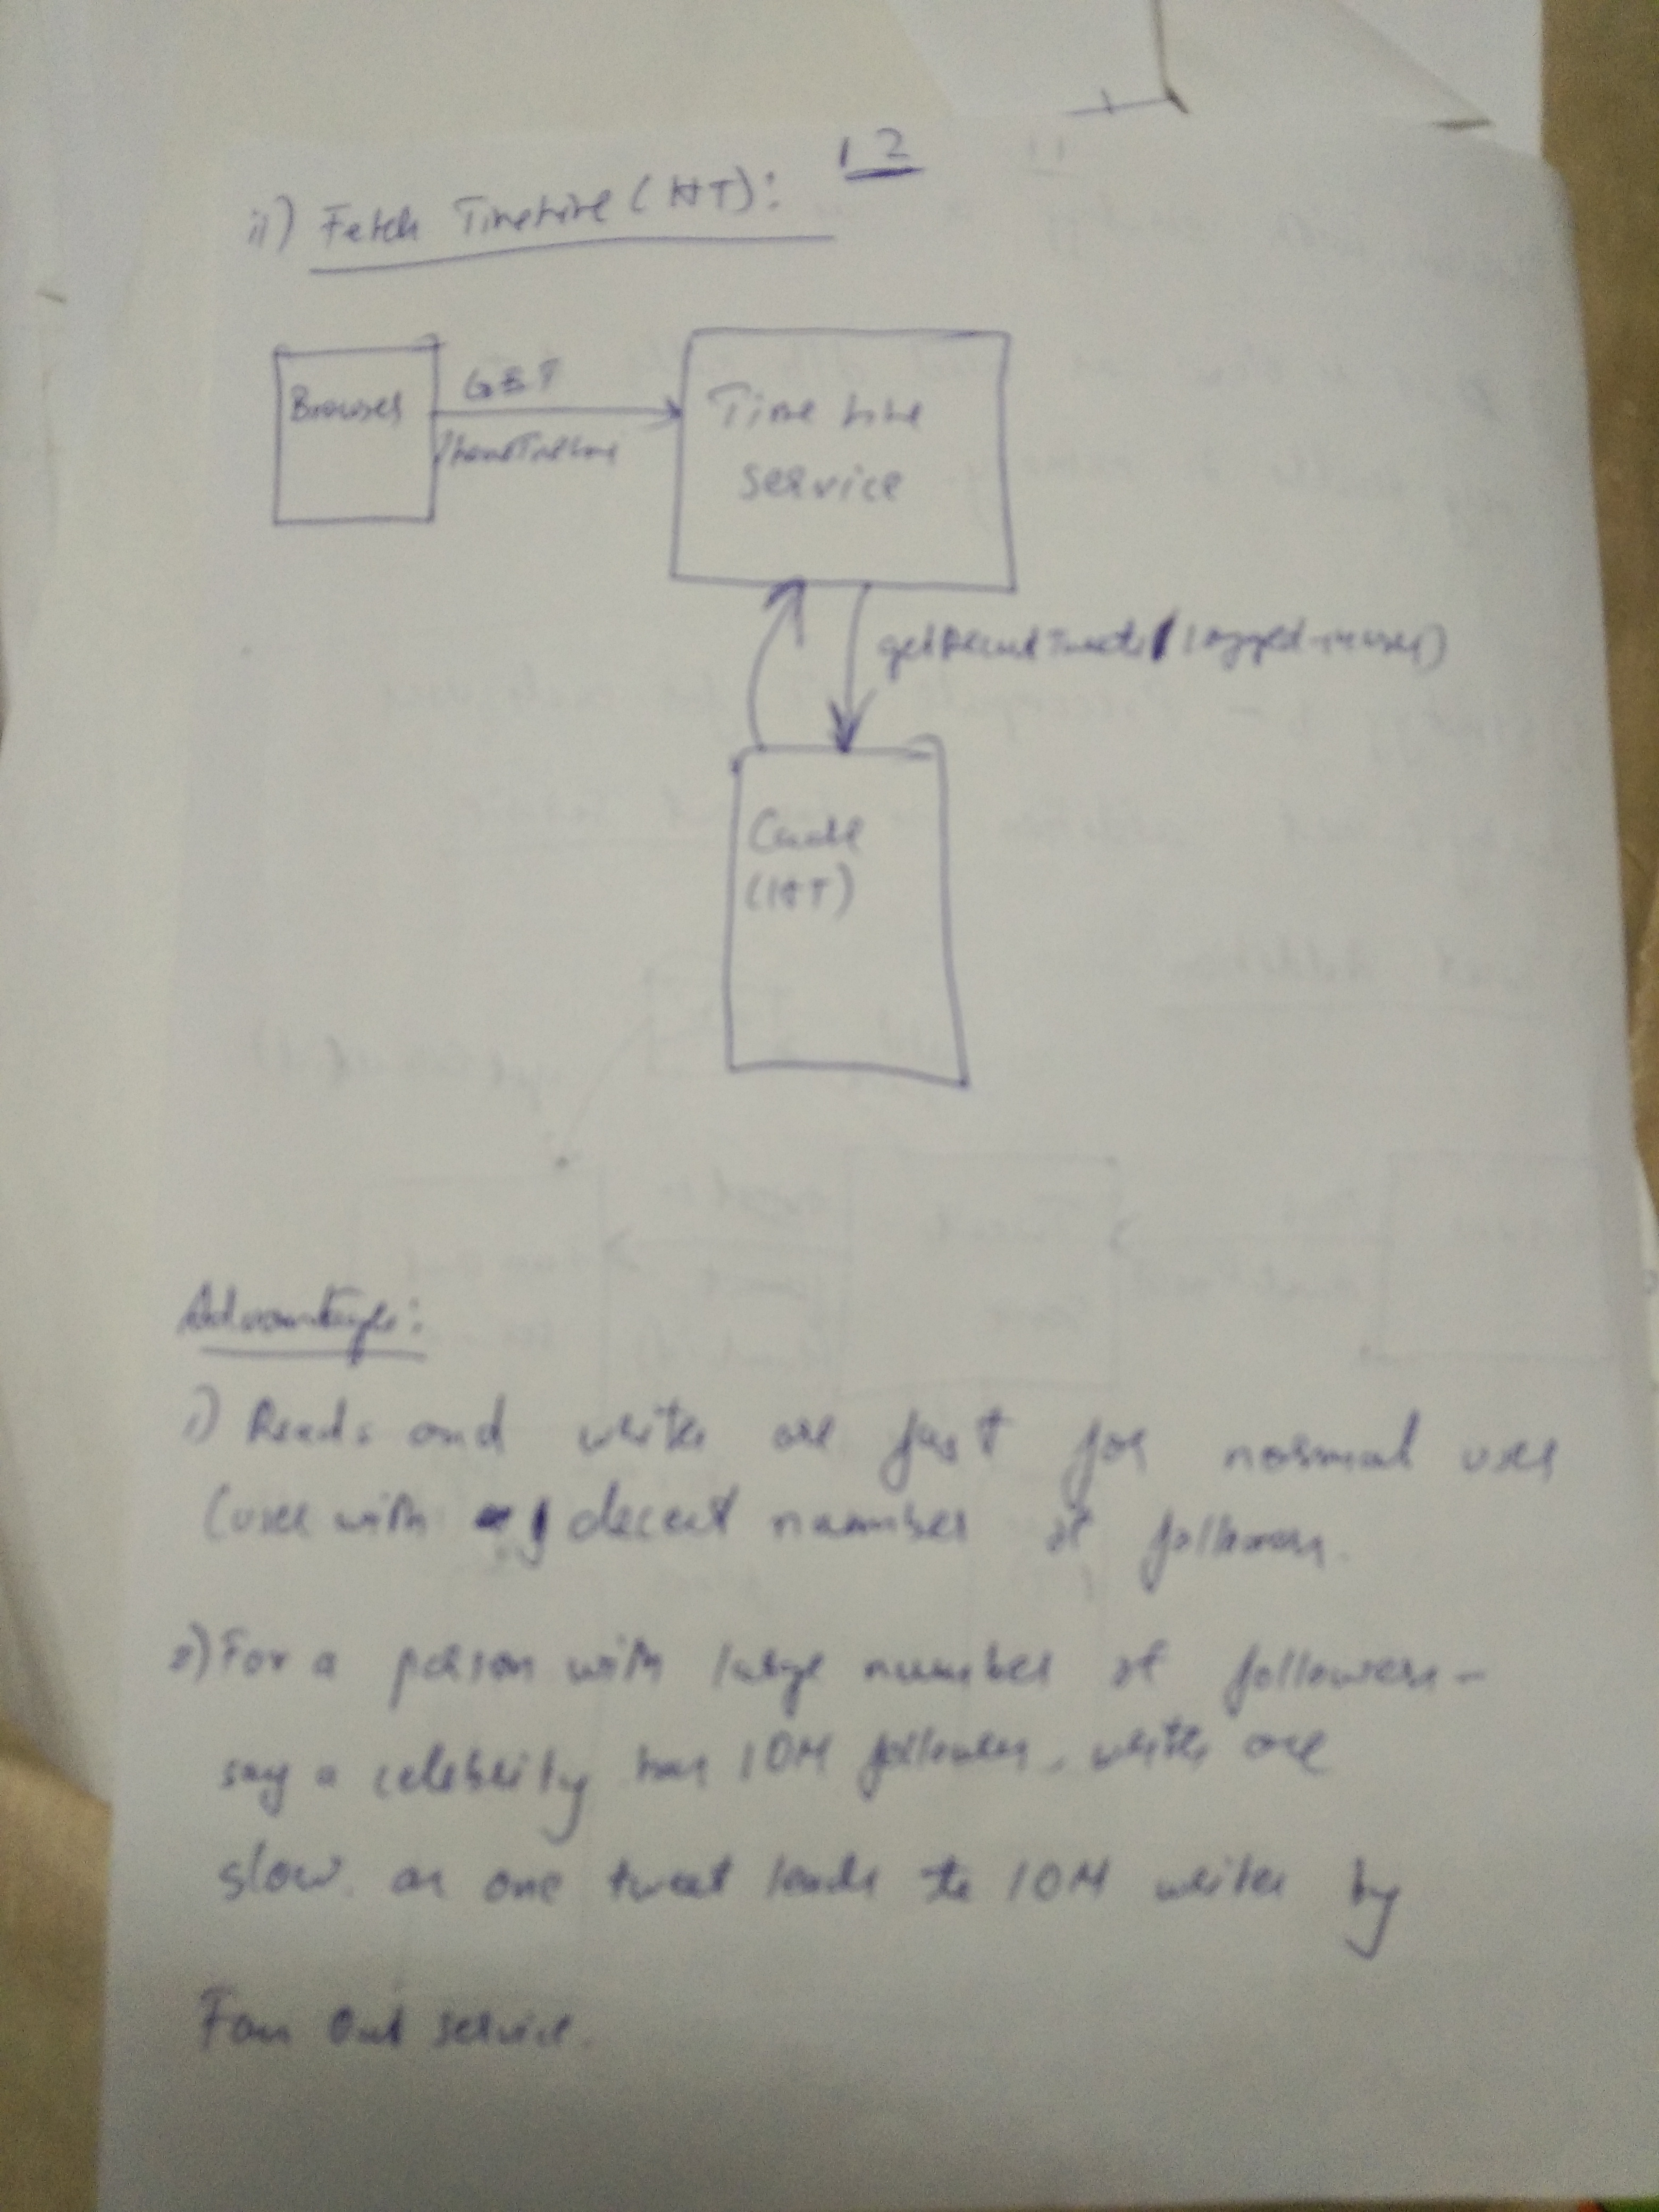 12
ii) Fetch Timeline (HT):
Browser
GET
/homeTimeline
Time line
service
getRecentTweets(logged-in user)
Cache
(HT)
Advantage:
i) Reads and writes are fast for normal user
(user with decent number of followers.
2) For a person with large number of followers -
say a celebrity has 10M followers, writes are
slow. as one tweet leads to 10M writes by
Fan Out service.